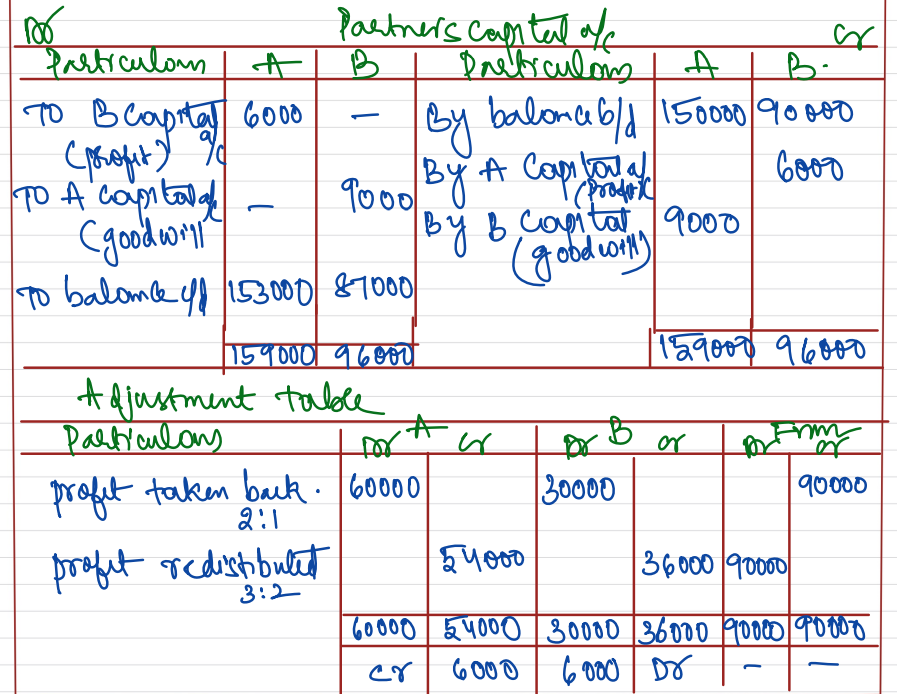 Dr Partners capital a/c Cr
Particulars A B Particulars A B.
To B Capital a/c (profit) 6000 — By balance b/d 150000 90000
By A Capital a/c (profit) 6000
To A capital a/c (goodwill — 9000
By B Capital (goodwill) 9000
To balance c/d 153000 87000
159000 96000 159000 96000
Adjustment table
Particulars A B Firm
Dr Cr Dr Cr Dr Cr
profit taken back. 60000 30000 90000
2:1
profit redistributed 54000 36000 90000
3:2
60000 54000 30000 36000 90000 90000
Cr 6000 6000 Dr — —